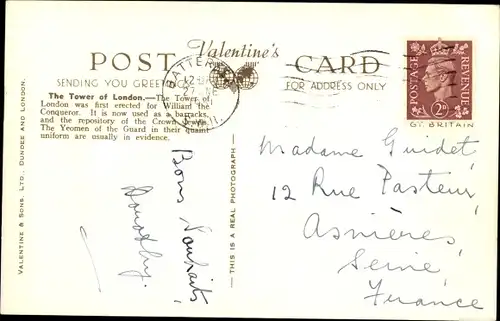 POST Valentine's CARD
SENDING YOU GREETINGS
FOR ADDRESS ONLY
The Tower of London.—The Tower of
London was first erected for William the
Conqueror. It is now used as a barracks,
and the repository of the Crown Jewels.
The Yeomen of the Guard in their quaint
uniform are usually in evidence.
BATTERSEA
S.W.11.
POSTAGE
REVENUE
2D
GT. BRITAIN
VALENTINE & SONS. LTD., DUNDEE AND LONDON.
— THIS IS A REAL PHOTOGRAPH —
Bons Souhaits,
Dorothy.
Madame Guidet,
12 Rue Pasteur,
Asnières,
Seine,
France